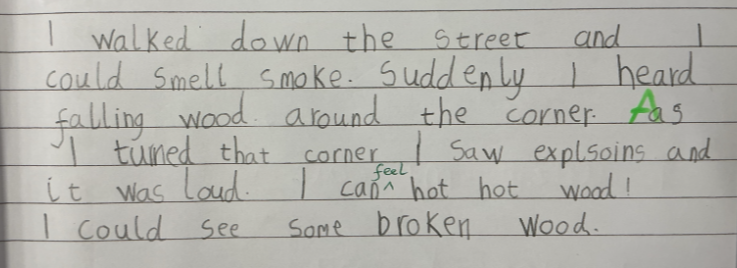 I walked down the street and I
could smell smoke. Suddenly I heard
falling wood around the corner. Aas
I turned that corner I saw explsoins and
it was loud. I can ^feel hot hot wood!
I could see some broken wood.